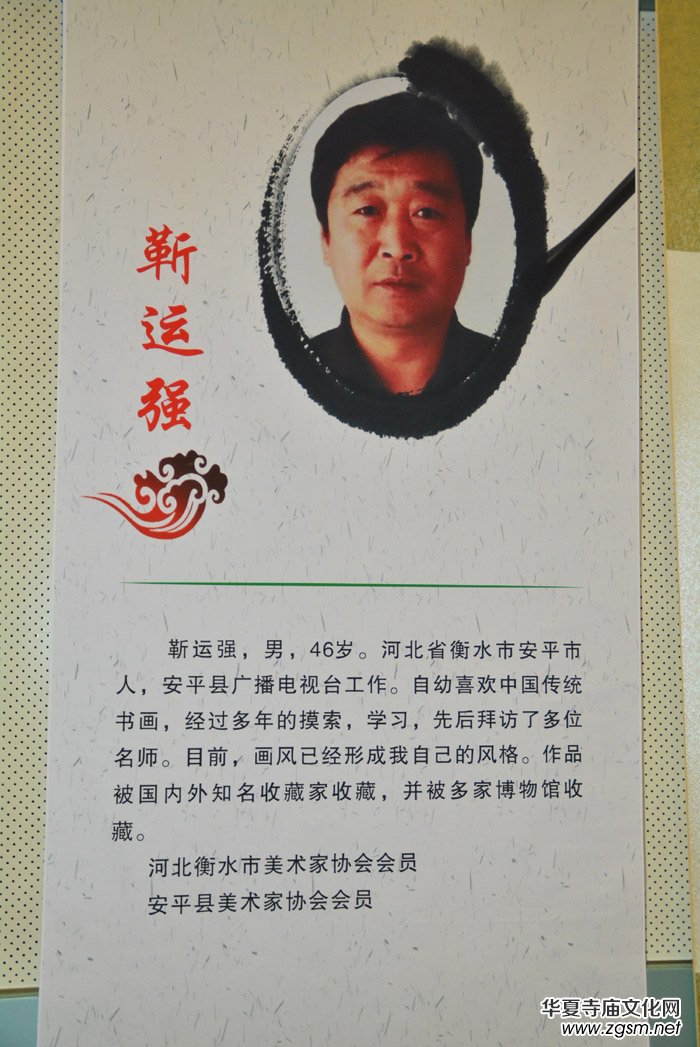 靳运强
靳运强，男，46岁。河北省衡水市安平市
人，安平县广播电视台工作。自幼喜欢中国传统
书画，经过多年的摸索，学习，先后拜访了多位
名师。目前，画风已经形成我自己的风格。作品
被国内外知名收藏家收藏，并被多家博物馆收
藏。
河北衡水市美术家协会会员
安平县美术家协会会员
华夏寺庙文化网
www.zgsm.net